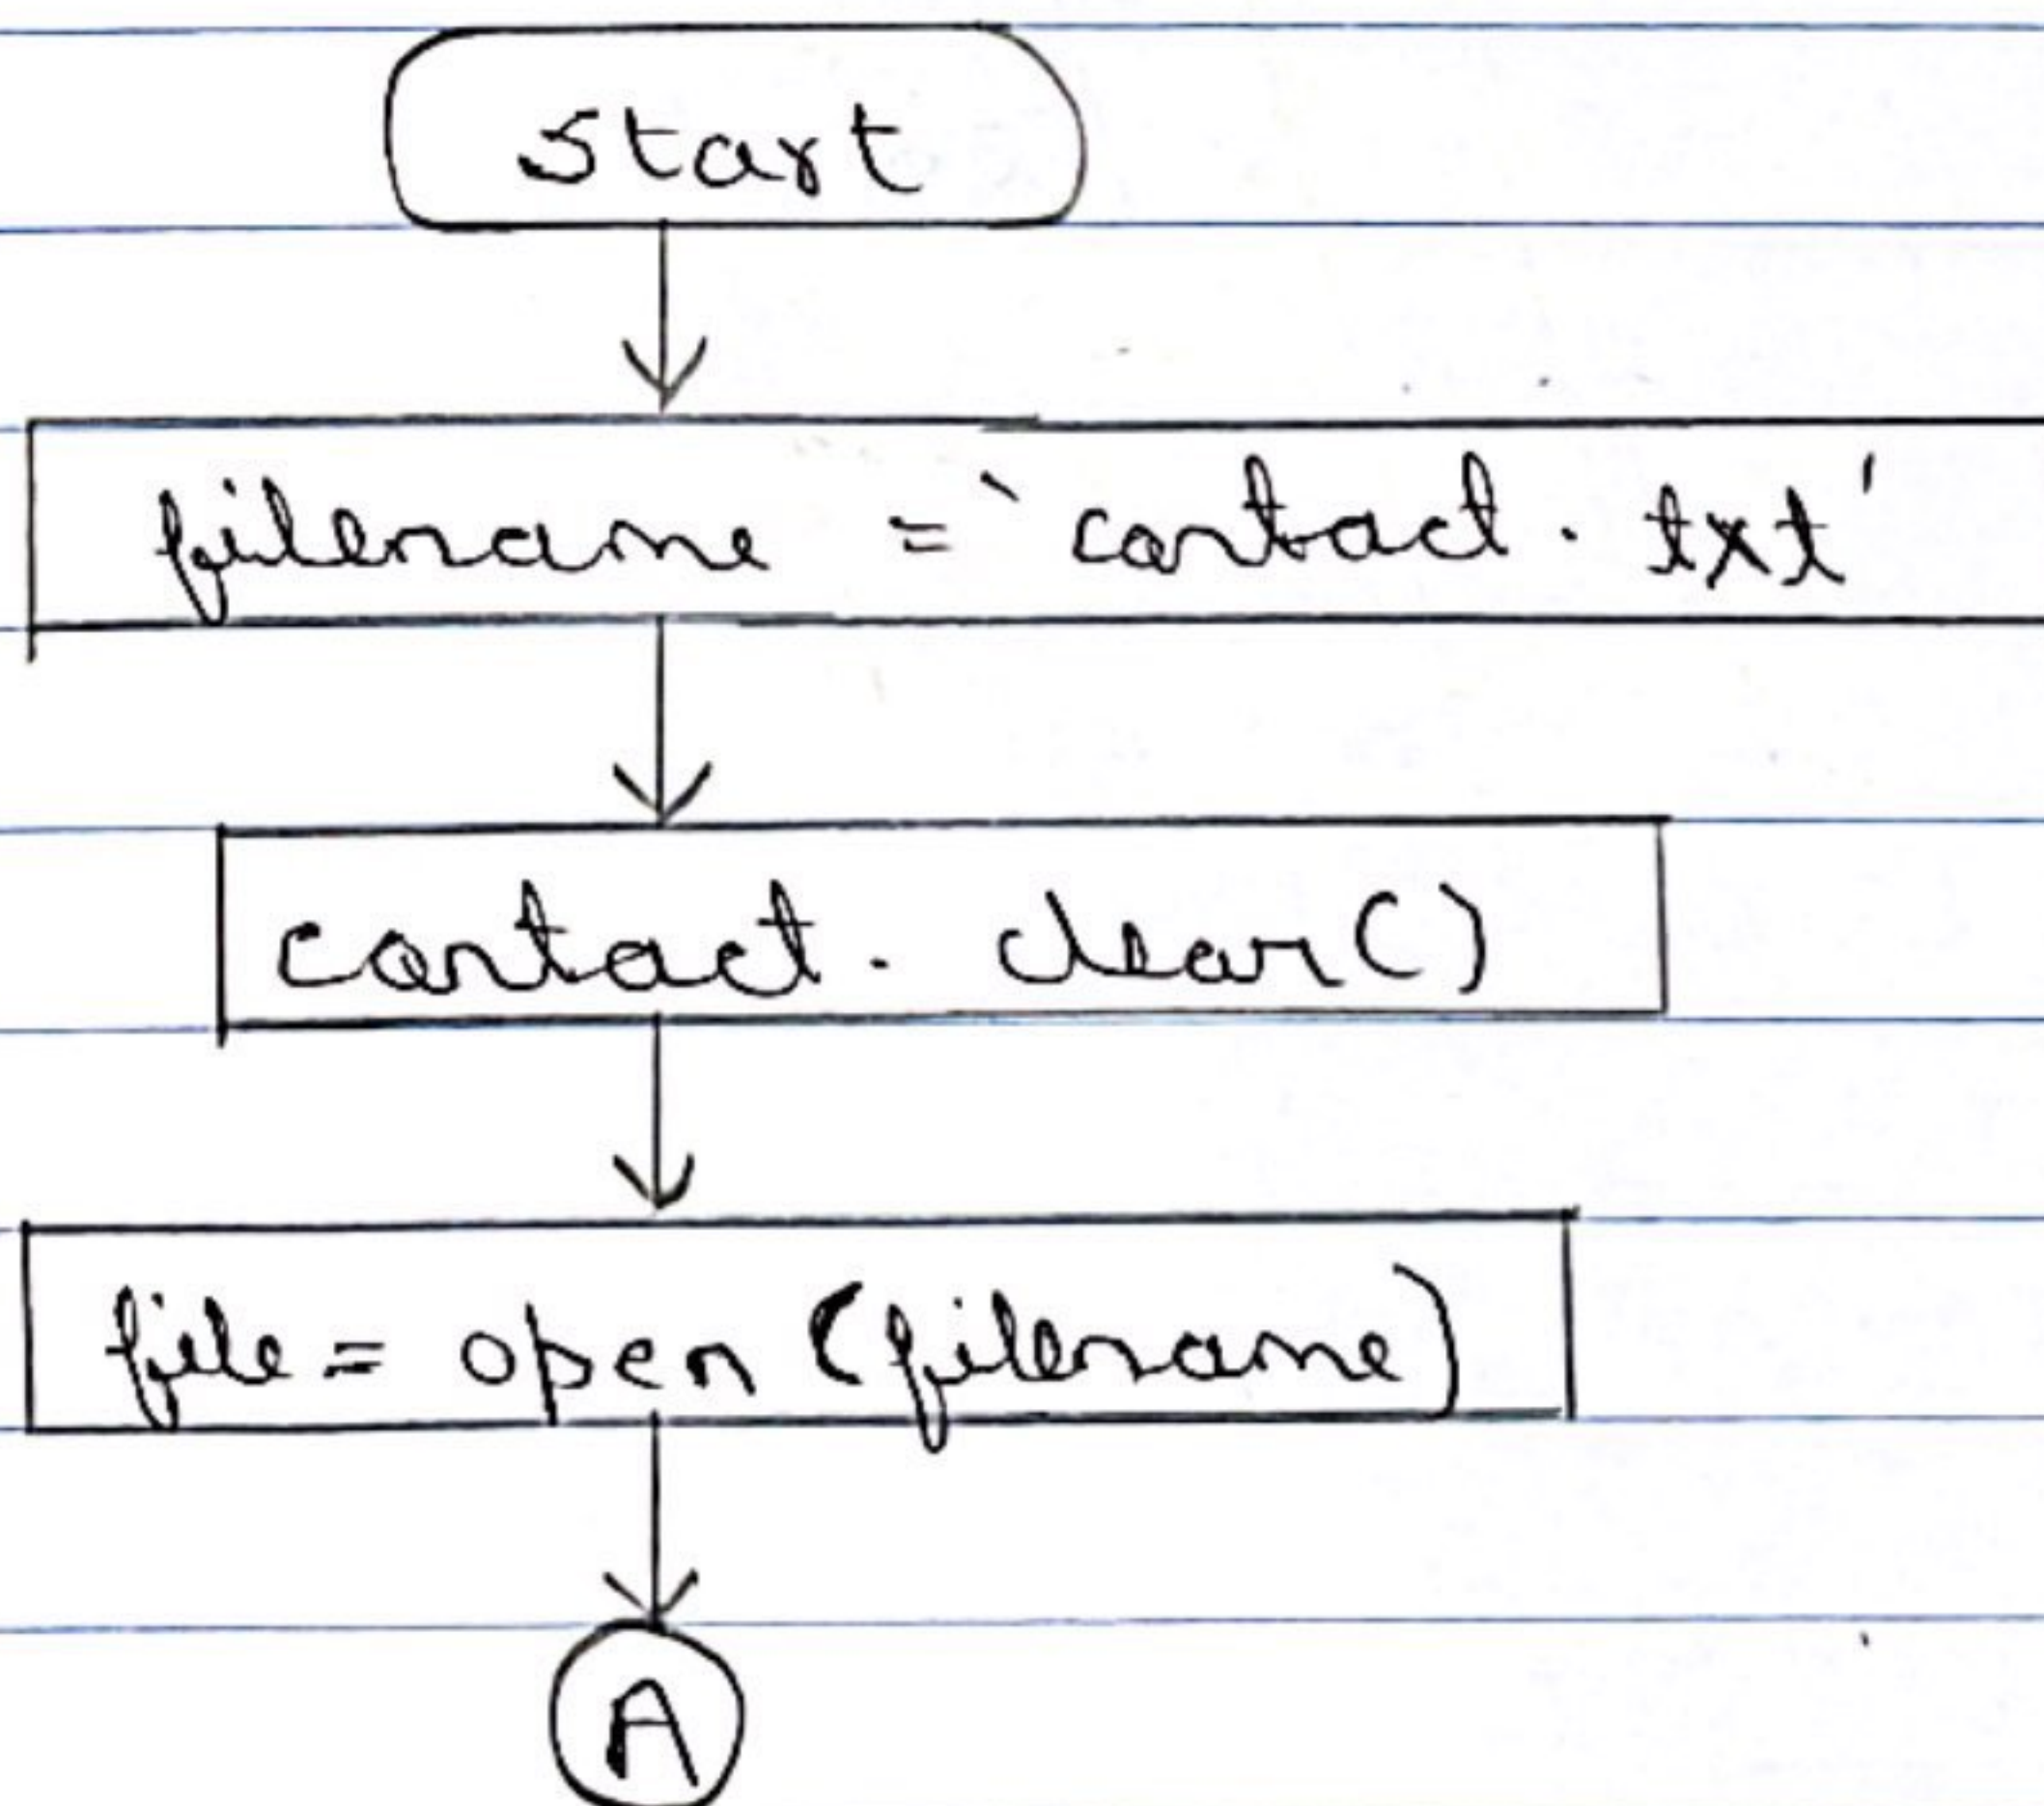 start
filename = `contact. txt'
contact. clear()
file = open (filename)
A